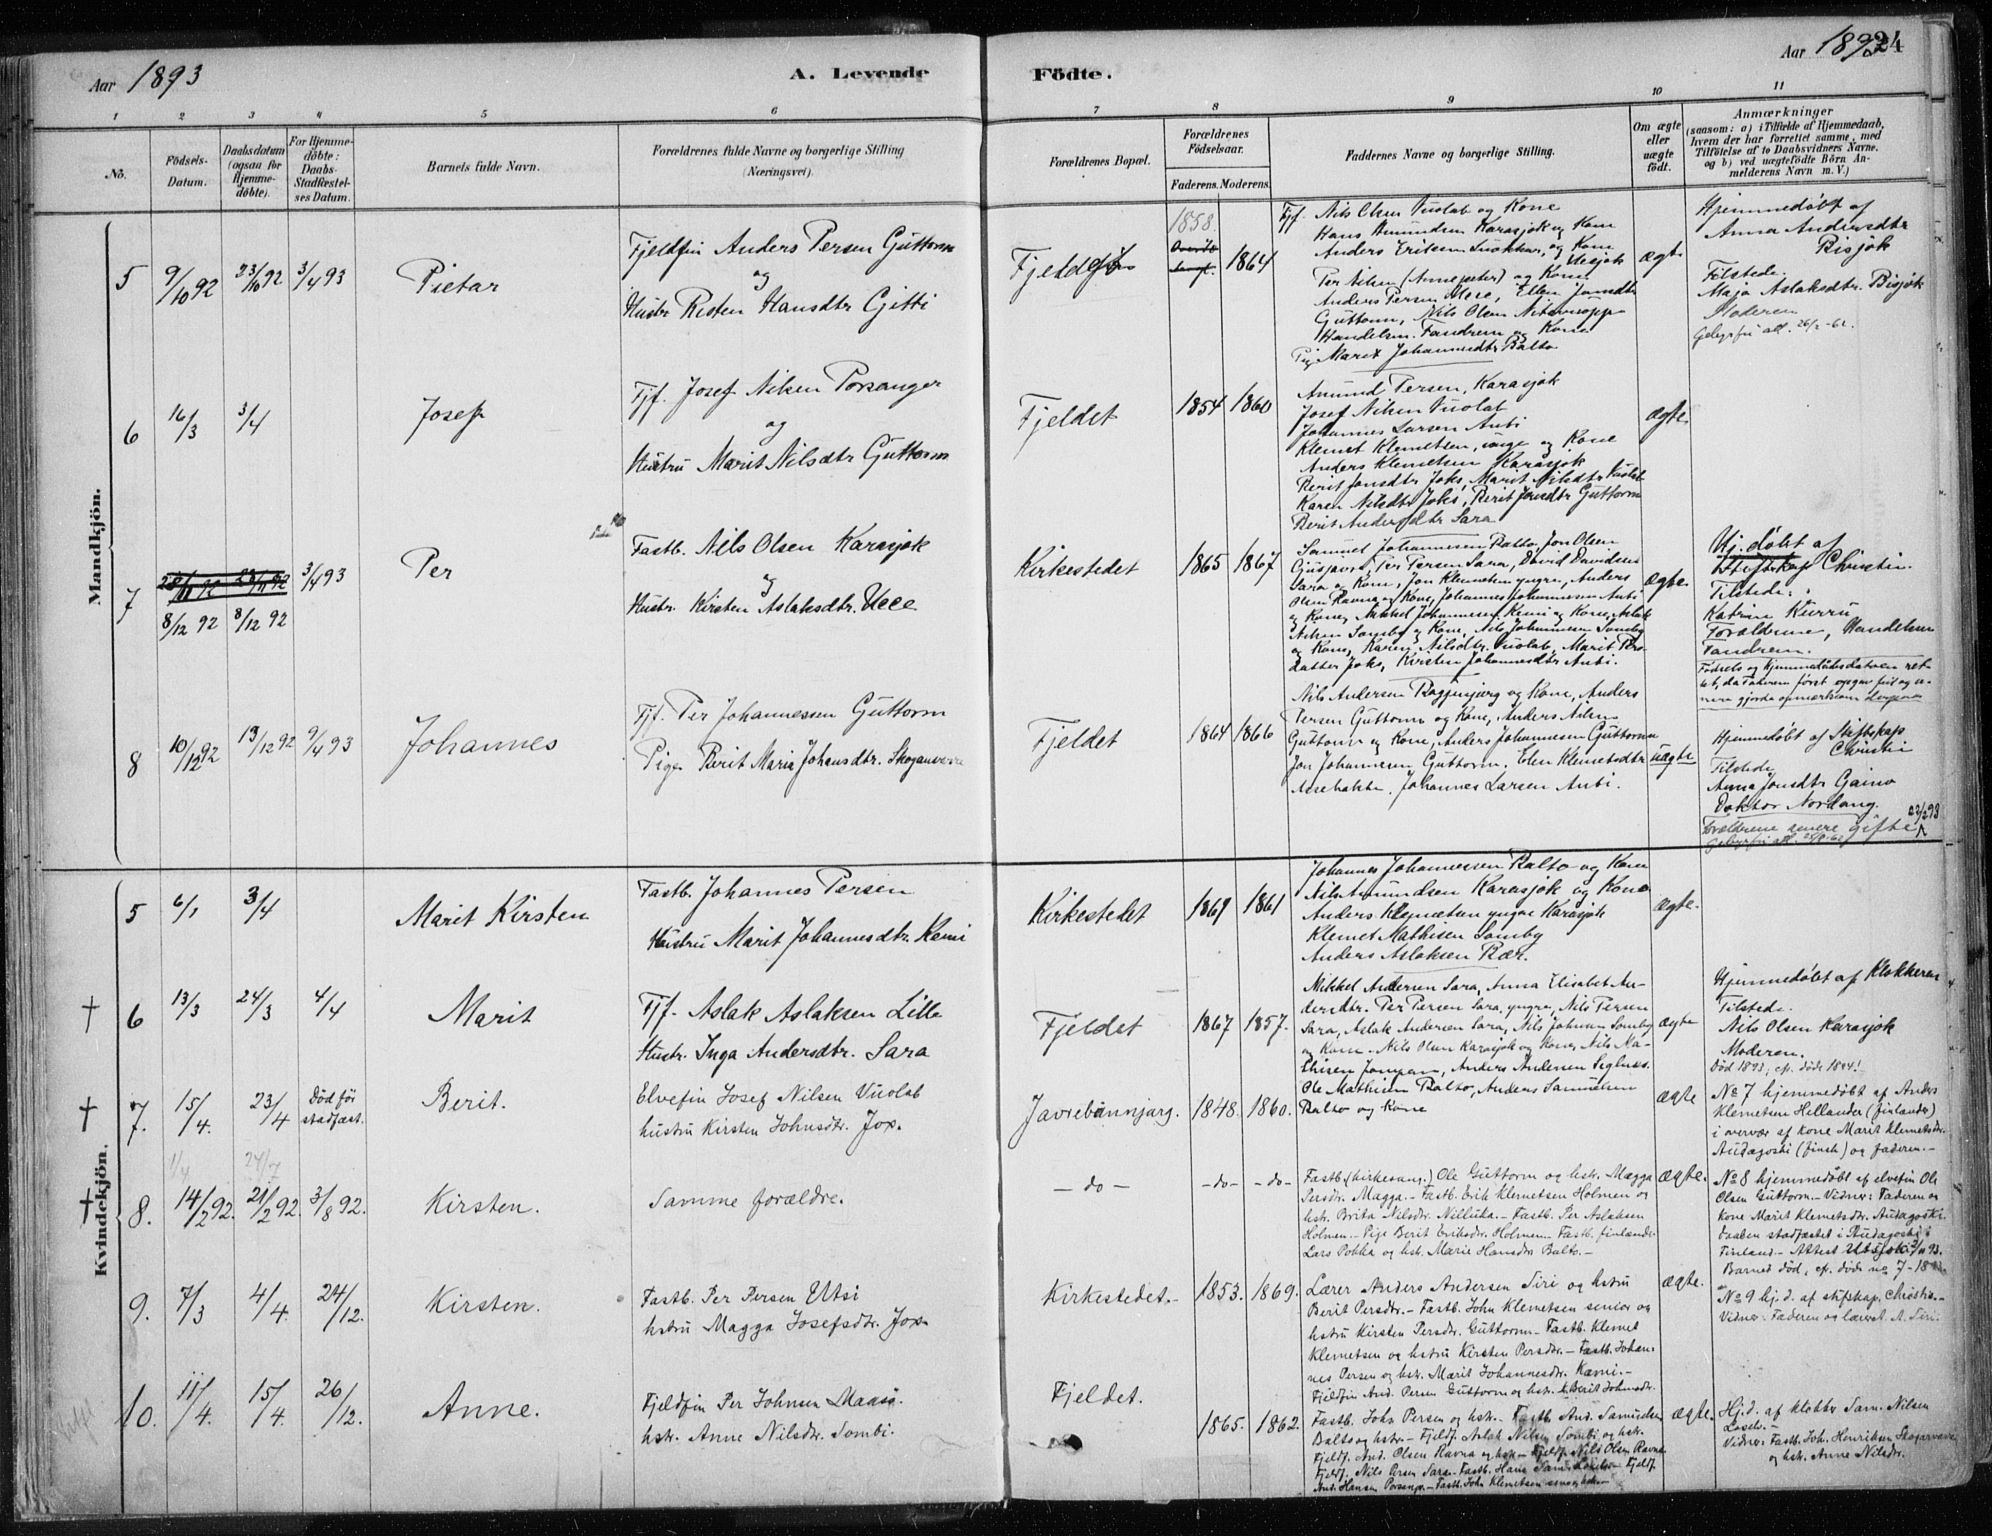 Aar 1893
A. Levende
Födte.
Aar 1893
24
1 2 3 4 5 6 7 8 9 10 11
No.
Födsels-Datum.
Daabsdatum (ogsaa for Hjemme-döbte).
For Hjemme-döbte: Daabs-Stadfæstel-ses Datum.
Barnets fulde Navn.
Forældrenes fulde Navne og borgerlige Stilling (Næringsvei).
Forældrenes Bopæl.
Forældrenes Födselsaar.
Faderens. Moderens.
Faddernes Navne og borgerlige Stilling.
Om ægte eller uægte födt.
Anmærkninger
(saasom: a) i Tilfælde af Hjemmedaab,
hvem der har forrettet samme, med
Tilföielse af to Daabsvidners Navne.
og b) ved uægtefödte Börn An-
melderens Navn m. V.)
Mandkjön.
5 9/10 92 23/10 92 3/4 93 Pietar
Fjeldfin Anders Persen Guttorm
og
Hustr. Risten Hansdtr Gjitti
1858. 1864
Fjf. Nils Olsen Vuolab og Kone
Hans Amundsen Karasjok og Kone
Guttorm, Nils Olsen
Handelsm. Fandrem og Kone
Pige Marit Johannesdtr Balto
ægte
Hjemmedøbt af
Anna Andersdtr
Bisjok
Tilstede:
Maja Aslaksdtr. Bisjok
Moderen
Gebyrfri att. 26/2-62.
6 16/3 3/4 Josef
Fjf. Josef Nilsen Porsanger
og
Hustru Marit Nilsdtr Guttorm
Fjeldet 1854 1860
Amund Persen, Karasjok
Josef Nilsen Vuolab
Johannes Larsen Anti
Klemet Klemetsen, unge og Kone
Anders Klemetsen Karasjok
Berit Jonsdtr Joks, Marit Nilsdtr Vuolab
Karen Nilsdtr Joks, Berit Jonsdtr Guttorm
Berit Andersdtr Sara
ægte.
7 8/12 92 8/12 92 3/4 93 Per
Fastb. Nils Olsen Karasjok
og
Hustr. Kirsten Aslaksdtr. Uccé
Kirkestedet 1865 1867
Samuel Johannesen Balto, Jon Olsen
Per Persen Sara, David Davidsen
Sara og Kone, Jon Klemetsen yngre, Anders
Olsen Ravna og Kone, Johannes Johannesen Anti
og Kone, Mikkel Johannesen Kemi og Kone, Aslak
Nilsen Somby og Kone, Nils Johannesen Somby
og Kone, Karen Nilsdtr. Vuolab, Marit Pers-
datter Joks, Kirsten Johannesdtr Anti.
ægte.
Hj. døbt af
Stiftskap Christie.
Tilstede:
Katrin Kurru
Forældrene, Handelsm
Fandrem.
Fødsels og hjemmedåbsdatoen ret-
tet, da Faderen først opgav feil og se-
nere gjorde opmærksom derpaa
8 10/12 92 13/12 92 9/4 93 Johannes
Fjf. Per Johannessen Guttorm
Pige Berit Maria Johansdtr. Skoganvarre
Fjeldet 1864 1866
Nils Andersen Boggenjarg og Kone, Anders
Persen Guttorm og Kone, Anders Nilsen
Guttorm og Kone, Anders Johannesen Guttorm
Jon Johannesen Guttorm, Elen Klemetsdtr
Assebakte, Johannes Larsen Anti.
uægte
Hjemmedøbt af Stiftskap
Christie
Tilstede
Anna Jonsdtr Gaino
Doktor Nordang.
Forældrene senere gifte 22/2 93
Kvindekjön.
5 6/1 3/4 Marit Kirsten
Fastb. Johannes Persen
Hustru Marit Johannesdtr. Kemi
Kirkestedet 1869 1861
Johannes Johannessen Balto og Kone
Nils Amundsen Karasjok og Kone
Anders Klemetsen yngre Karasjok
Klemet Mathisen Somby
Anders Aslaksen Bær.
ægte.
† 6 13/3 24/3 4/4 Marit
Fjf. Aslak Aslaksen Lille
Hustr. Inga Andersdtr. Sara
Fjeldet 1867 1857.
Mikkel Andersen Sara, Anna Elisabet An-
dersdtr. Per Persen Sara, yngre, Nils Persen
Sara, Aslak Andersen Sara, Nils Johnsen Somby
og Kone. Nils Olsen Karasjok og Kone, Nils Ma-
thisen Anders Andersen
ægte
Hjemmedøbt af Klokkeren
Tilstede:
Nils Olsen Karasjok
Moderen.
Død 1893, cf. døde 1894!
† 7. 15/4. 23/4 Død før stadfæst. Berit.
Elvefin Josef Nilsen Vuolab
hustru Kirsten Johnsdtr. Jox.
Javrebænnjarg. 1848. 1860.
Ole Mathisen Balto, Anders Samuelsen
Balto og Kone
ægte
No 7 hjemmedøbt af Anders
Klemetsen Hellander (finlander)
i overvær af kone Marit Klemetsdtr.
Audagoski (finsk) og faderen.-
1/4 24/7
† 8. 14/2 92. 21/2 92. 3/8 92. Kirsten.
Samme forældre.
- do - -do- -do-
Fastb. (kirkesang.) Ole Guttorm og hstr. Magga
Persdtr. Magga.- Fastb. Erik Klemetsen Holmen og
hstr. Brita Nilsdtr. Nilluka.- Fastb. Per Aslaksen
Holmen.- Pige Berit Eriksdtr. Holmen.- Fastb. finlænder
Lars Pokka og hstr. Marie Hansdtr Balto.-
ægte.
No 8 hjemmedøbt af elvefin Ole
Olsen Guttorm.- Vidner: Faderen og
kone Marit Klemetsdtr. Audagoski.
Daaben stadfæstet i Audagoski i
Finland.- Attest Utsjoki 2/11 93.
Barnet død, cf. døde no 7-18
9. 7/3 4/4. 24/12. Kirsten.
Fastb. Per Persen Utsi
hstru Magga Josefsdtr. Jox
Kirkestedet.- 1853. 1869.
Lærer Anders Andersen Siri og hstru
Berit Persdtr.- Fastb. John Klemetsen senior og
hstru Kirsten Persdtr. Guttorm.- Fastb. Klemet
Klemetsen og hstru Kirsten Persdtr.- Fastb. Johan-
nes Persen og hstr. Marit Johannesdtr. Kæmi.-
Fjeldfin And. Persen Guttorm og hstr. Berit Johnsdtr.
ægte.
No 9 hj.d. af stiftskap. Christie.-
Vidner: Faderen og lærer A. Siri.
10. 11/4. 15/4. 26/12. Anne.
Fjeldfin Per Johnsen Maasø.
hstr. Anne Nilsdtr. Sombi.
Fjeldet. 1865. 1862.
Fastb. John Persen og hstr.- Fastb. And. Samuelsen
Balto og hstr.- Fjeldf. Aslak Nilsen Sombi og hstr.
Fjeldf. And. Olsen Ravna og hstr.- Fjeldf. Nils Olsen Ravna
Fjeldf. Nils Persen Sara.- Fastb. Hans
And. Hansen Porsanger.- Fastb. John Klemetsen senior og hstr.-
ægte.
Hj.d. af klokker Sam. Nilsen
Vidner: Fastb. Joh. Henriksen Skoganvarre
og hstr. Anne Nilsdtr.